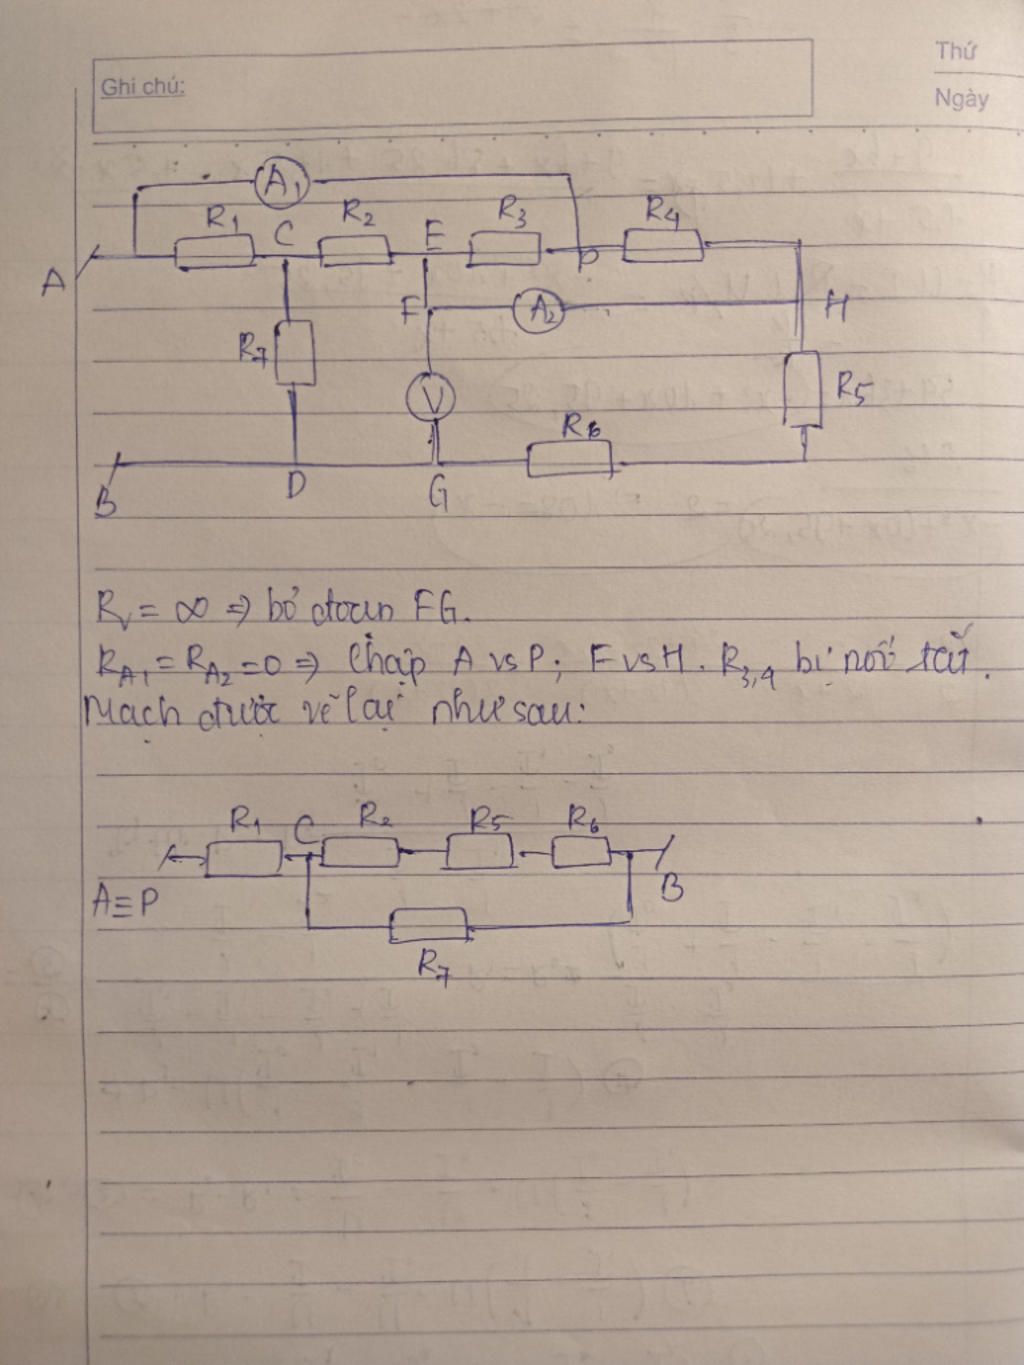 Thứ
Ghi chú:
Ngày
A₁
R₁ C R₂ E R₃ P R₄
A
F A₂ H
R₇
V R₅
R₆
B D G
Rᵥ = ∞ => bỏ đoạn FG.
R_A₁ = R_A₂ = 0 => Chập A vs P; F vs H. R₃,₄ bị nối tắt.
Mạch được vẽ lại như sau:
R₁ C R₂ R₅ R₆
A≡P B
R₇